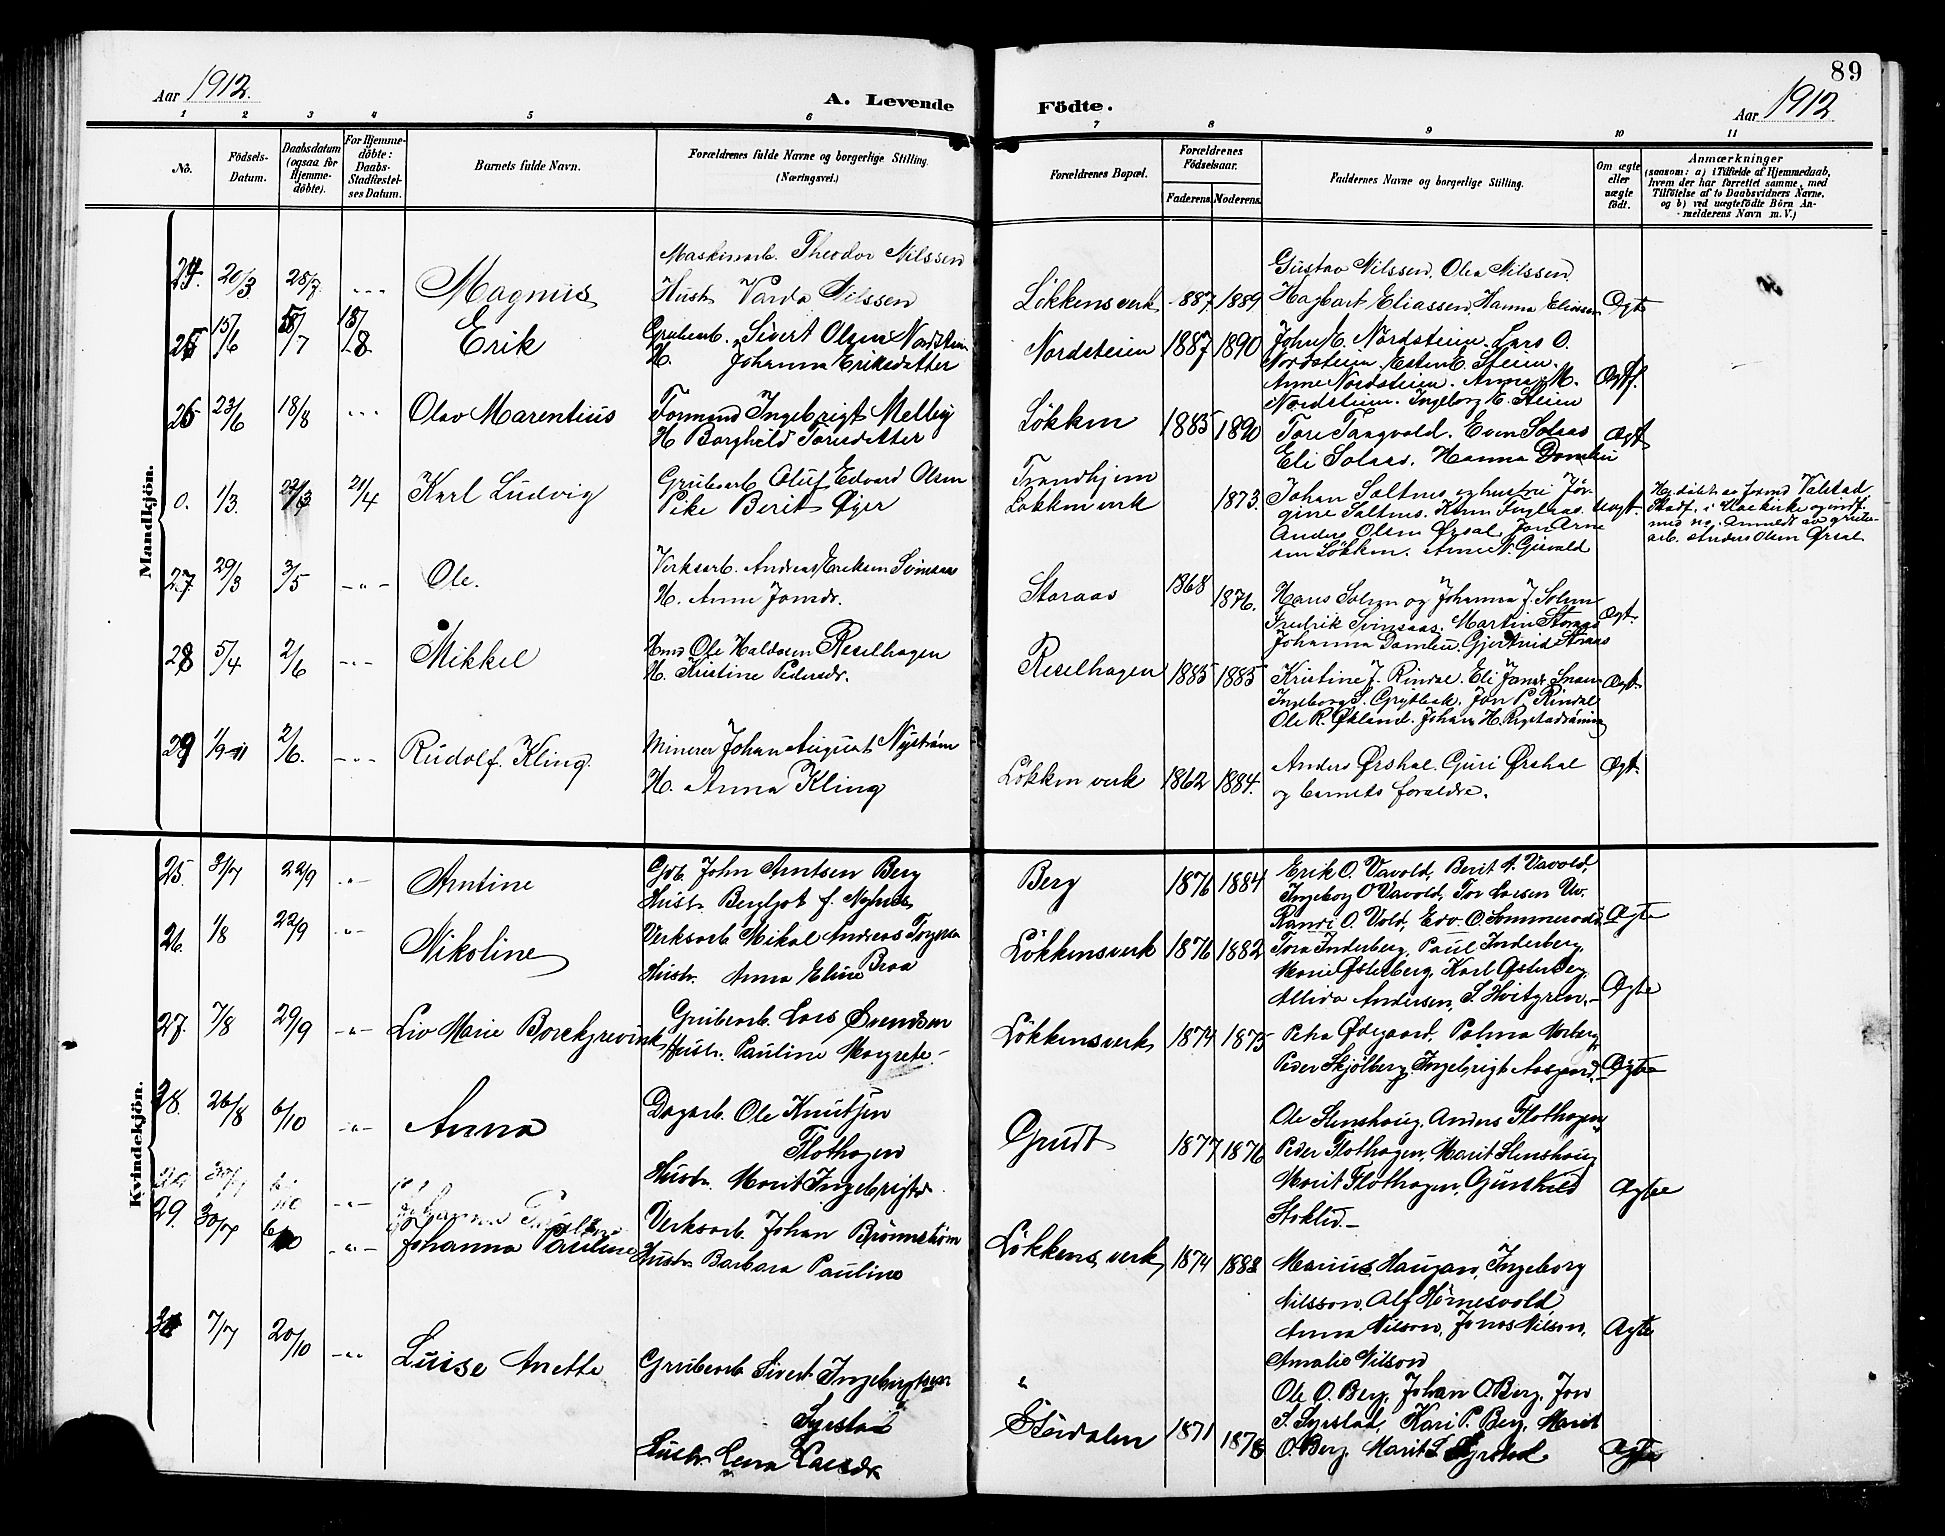 89
Aar 1912.
A. Levende Födte.
Aar 1912
1 2 3 4 5 6 7 8 9 10 11
No.
Födsels-Datum.
Daabsdatum (ogsaa for Hjemme-döbte).
For Hjemme-döbte: Daabs-Stadfæstel-ses Datum.
Barnets fulde Navn.
Forældrenes fulde Navne og borgerlige Stilling.
(Næringsvei.)
Forældrenes Bopæl.
Forældrenes Födselsaar.
Faderens. Moderens.
Faddernes Navne og borgerlige Stilling.
Om ægte eller uægte födt.
Anmærkninger
(saasom: a) i Tilfælde af Hjemmedaab,
hvem der har forrettet samme, med
Tilföielse af to Daabsvidners Navne,
og b) ved uægtefödte Börn An-
melderens Navn m. V.)
Mandkjön.
24. 20/3 28/7 -"- Magnus
Maskinarb. Theodor Nilssen
Hust. Varda Nilssen
Løkkensverk 887 1889
Gustav Nilssen, Olea Nilssen
Hagbart Eliassen, Hanna Eliassen Ægte
25 15/6 /7 18/8 Erik
Grubearb. Sivert Olsen Nordsteien
H. Johanna Eriksdatter
Nordsteien 1887 1890
John E. Nordsteien. Lars O.
Nordsteien. Esten E. Steien.
Anne Nordsteien. Anna M.
Nordsteien. Ingeborg E. Steien
26 23/6 18/8 -"- Olav Marentius
Formand Ingebrigt Melby
H Borghild Toresdatter
Løkken 1885 1890
Tore Tangvald. Even Solaas
Eli Solaas. Hanna Domliu Ægt
0. 1/3. 22/3 21/4 Karl Ludvig
Grubearb Oluf Edvard Olsen
Pike Berit Øyer
Trondhjem
Løkken verk 1873.
Johan Saltnes og hustru Jør-
gine Saltnes. Karen Inglaas.
Anders Olsen Ørsal, Jon Arne
sen Løkken. Anne N. Grisvald
uægt.
Hj. døbt av formd Valstad
Stadf. i Moe kirke og indf.
med no. Anmeldt av grube-
arb. Anders Olsen Ørsal
27. 29/3 3/5 -"- Ole.
Verksarb. Andreas Eriksen Svinsaas
H. Anne Jonsdr.
Storaas 1868 1876.
Hans Solem og Johanna J. Solem
Fredrik Svinsaas. Martin Storaas
Johanna Domliu. Gjertrud Storaas
Ægt.
28 5/4 2/6 -"- Mikkel
Hmd Ole Haldosen Reselhagen
H. Kristine Pedersdr.
Reselhagen 1885 1885
Kristine J. Rindal. Eli Jonsdr. Snoen
Ingeborg S. Grytbak. Jon P. Rindal
Ole R. Økland. Johan H. Rigstadrønning
Ægt.
29 1/9-11 2/6. -"- Rudolf. Kling.
Minerer Johan August Nystrøm
H. Anna Kling
Løkken verk 1862 1884.
Anders Ørshal. Guri Ørshal
og barnets forældre.
Ægt.
Kvindekjön.
25. 31/7 22/9 -"- Arntine
Gdb. John Arntsen Berg
Hust. Bergljot f. Nyhus
Berg 1876 1884
Erik O. Vavold, Berit A. Vavold,
Ingeborg O Vavold, Tor Larsen Uv.
Randi O. Vold, Edv. O. Sommervold Ægte
26. 1/8 22/9 -"- Nikoline
Verksarb Mikal Andreas Torgersen
Hustr. Anna Eline Braa
Løkkensverk 1876 1882
Tora Inderberg, Paul Inderberg,
Marie Østerberg, Karl Østerberg,
Allida Andersen, S. Hvitgren. Ægte
27. 7/8 29/9 -"- Liv Marie Borckgrevink
Grubearb. Lars Svendsen
Hustr. Pauline Margrete
Løkkensverk 1874 1875
Petra Ødegaard, Palma Moberg,
Peder Skjølberg, Ingebrigt Aasgaard, Ægte
28. 26/8 6/10 -"- Anna
Dagarb. Ole Knutsen
Flothagen
Hustr. Marit Ingebrigtsdr.
Grudt 1877 1876
Ole Stenshaug, Anders Flothagen,
Peder Flothagen, Marit Stenshaug
Marit Flothagen, Gunhild
Stoklid. Ægte
29 30/7
29. 30/7 6/10 -"- Johanna Pauline
Verksarb. Johan Brønnstrøm
Hustr Barbara Pauline
Løkkens verk 1874 1888
Marius Haugan, Ingeborg
Nilsson, Alf Hørnesvold,
Anna Nilson, Jonas Nilsen,
Amalie Nilson
Ægte
30 7/7 20/10 -"- Luise Anette
Grubearb Sivert Ingebrigtsen
Syrstad
Hustr. Lena Larsdr
Stordalen 1871 1878
Ole O. Berg, Johan O Berg, Jon
S. Syrstad, Kari P. Berg, Marit
O. Berg, Marit L Syrstad Ægte